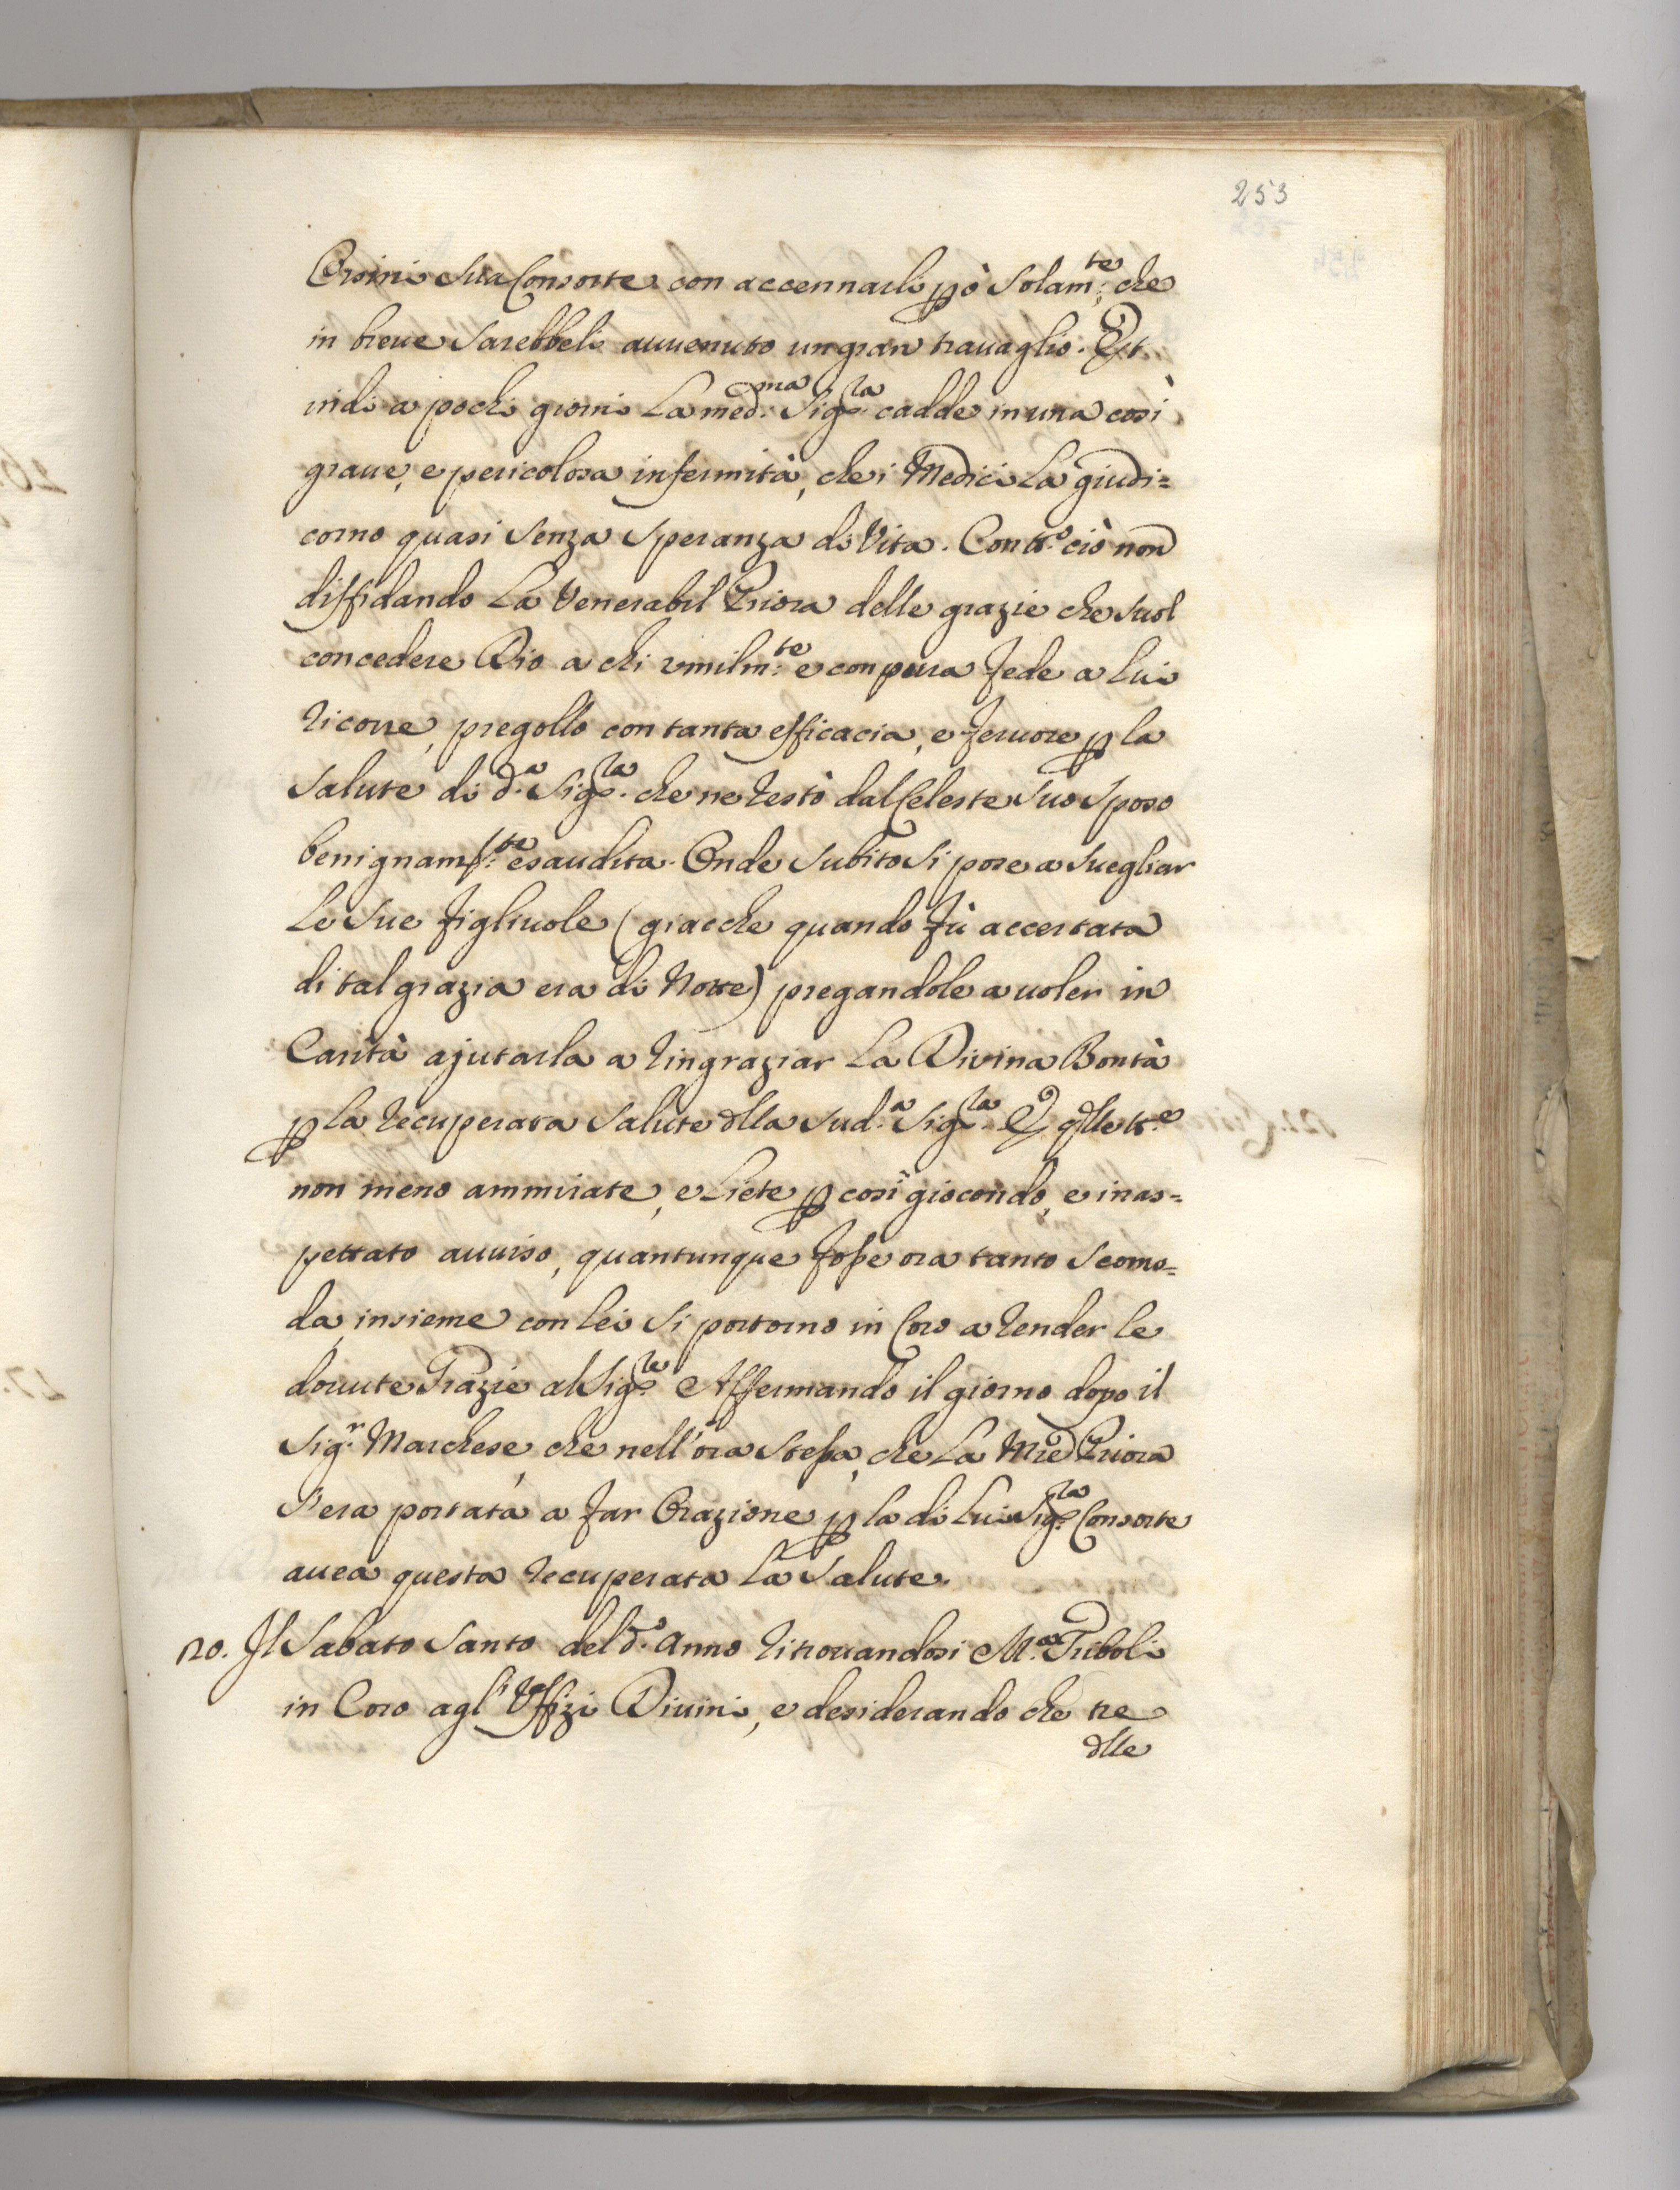 253
Orsini Sua Consorte con accennarli però Solam.te che
in breve Sarebbeli auuenuto un gran trauaglio. Et
indi a pochi giorni La med.ma Sig.ra cadde in una così
graue, e pericolosa infermità, che i Medici La giudi=
corno quasi Senza Speranza di Vita. Con tt.o ciò non
diffidando La Venerabil Priora delle grazie che Suol
concedere Dio a chi vmilm.te e con pura Fede a Lui
ricorre, pregollo con tanta efficacia, e feruore p la
Salute di d.a Sig.ra che ne restò dal Celeste Suo Sposo
benignam.te esaudita. Onde Subito Si pose a Suegliar
Le Sue Figliuole (giacche quando Fù accertata
di tal grazia era di Notte) pregandole a uoler in
Carità ajutarla a ringraziar La Divina Bontà
p la recuperata Salute dlla Sud.a Sig.ra E qlle tt.e
non meno ammirate, e Liete p così giocondo, e inas=
pettato auuiso, quantunque Fosse ora tanto Scomo=
da, insieme con Lei Si portorno in Coro a render le
douute Grazie al Sig.re Affermando il giorno dopo il
Sig.r Marchese che nell'ora Stessa, che La Mre Priora
S'era portata a Far Orazione p la di Lui Sig.ra Consorte
auea questa recuperata La Salute.
20. Il Sabato Santo del d.o Anno ritrouandosi M.a Triboli
in Coro agl'Vffizi Diuini, e desiderando che tre
dlle